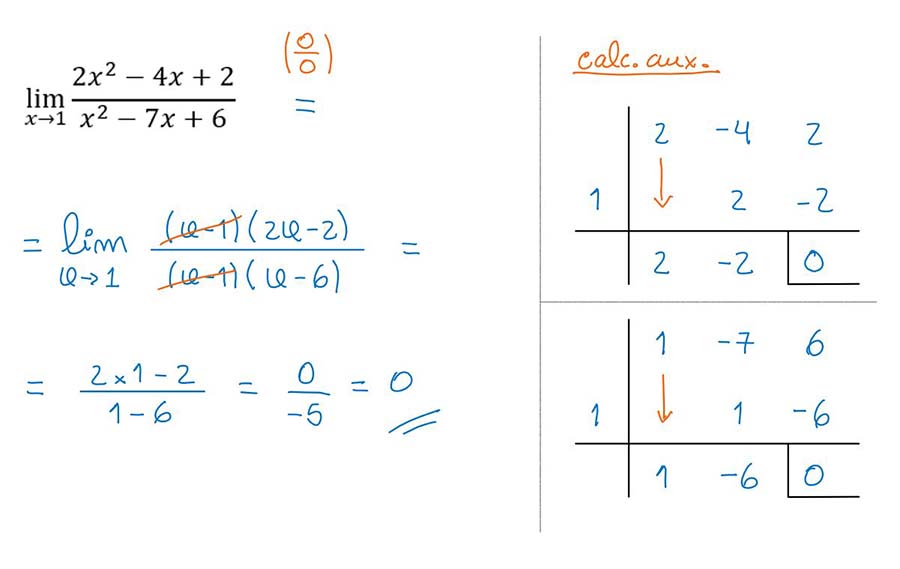 lim x→1 (2x² − 4x + 2)/(x² − 7x + 6) (0/0) =
= lim x→1 ((x-1)(2x-2))/((x-1)(x-6)) =
= (2×1-2)/(1-6) = 0/-5 = 0
calc. aux.
2 -4 2
1 2 -2
2 -2 0
1 -7 6
1 1 -6
1 -6 0